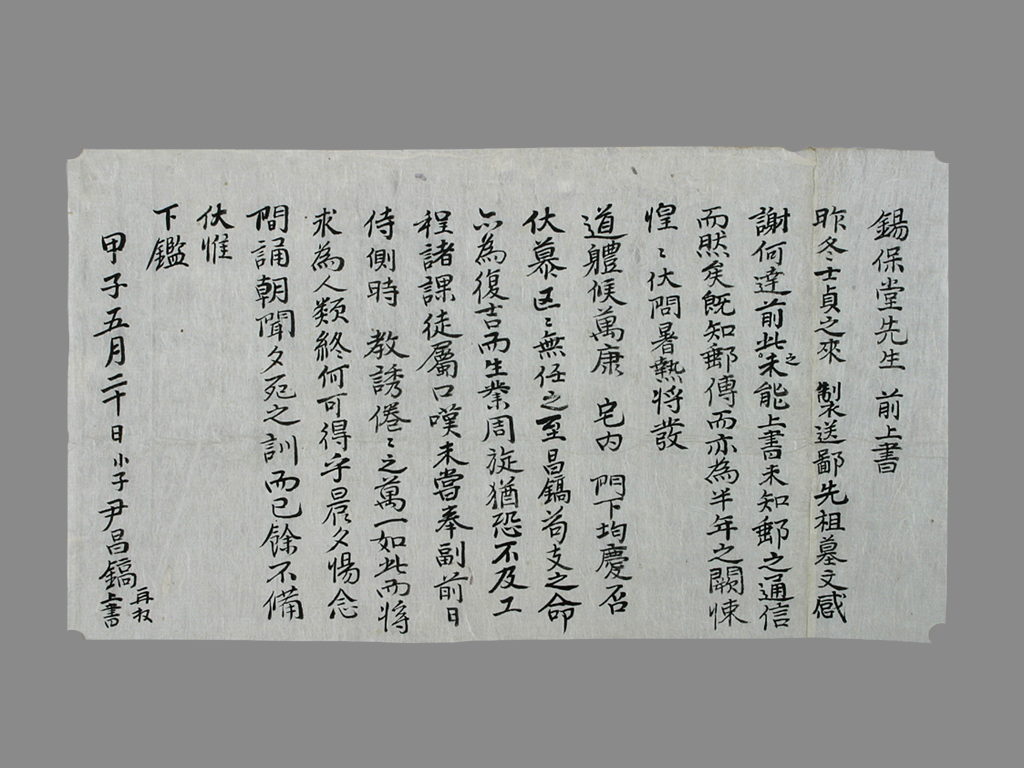 錫保堂先生 前上書
昨冬士貞之來 製送鄙先祖墓文感
謝何達前此之未能上書未知郵之通信
而然矣旣知郵傳而亦為半年之闕悚
惶〻伏問暑熱將發
道體候萬康 宅內 門下均慶否
伏慕区〻無任之至昌鎬苟支之命
亦為復吉而生業周旋猶恐不及工
程諸課徒屬口嘆未嘗奉副前日
侍側時 教誘倦〻之萬一如此而將
求為人類終何可得乎晨夕惕念
間誦朝聞夕死之訓而已餘不備
伏惟
下鑑
甲子五月二十日小子尹昌鎬再拜上書